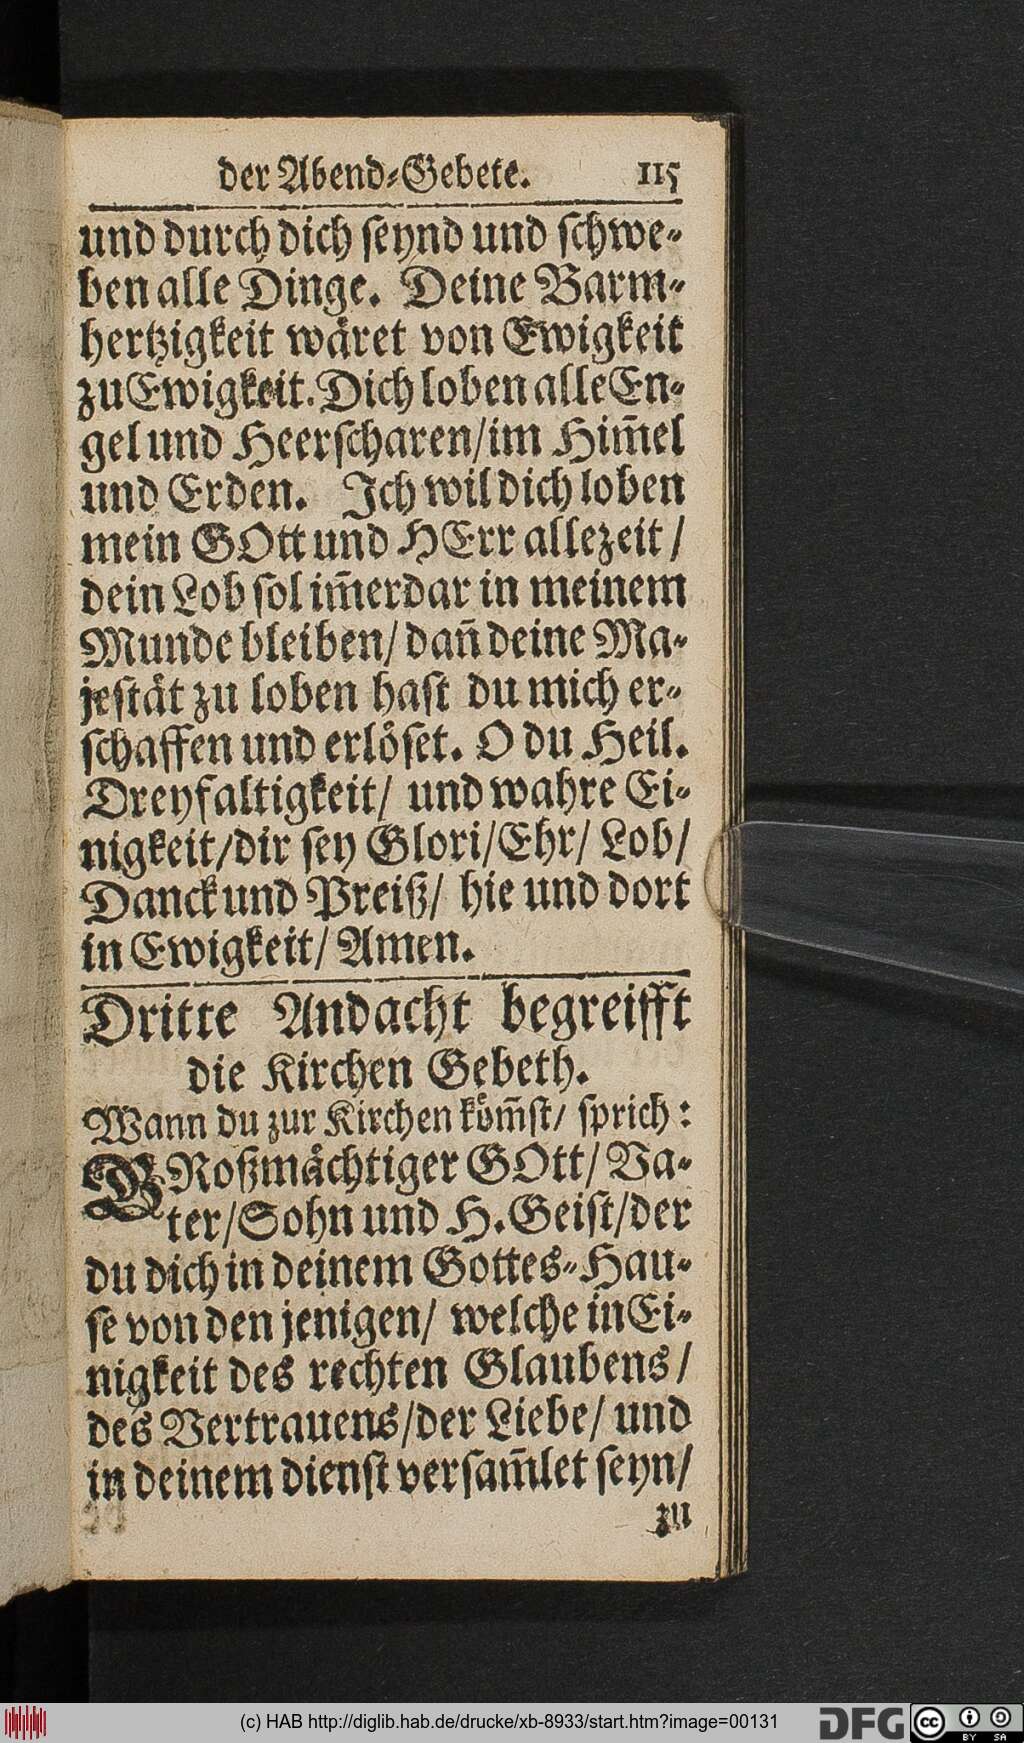 der Abend-Gebete. 115
und durch dich seynd und schwe-
ben alle Dinge. Deine Barm-
hertzigkeit wäret von Ewigkeit
zu Ewigkeit. Dich loben alle En-
gel und Heerscharen/ im Him̃el
und Erden. Ich wil dich loben
mein GOtt und HErr allezeit /
dein Lob sol im̃erdar in meinem
Munde bleiben/ dañ deine Ma-
jestät zu loben hast du mich er-
schaffen und erlöset. O du Heil.
Dreyfaltigkeit/ und wahre Ei-
nigkeit/ dir sey Glori/ Ehr/ Lob/
Danck und Preiß/ hie und dort
in Ewigkeit/ Amen.
Dritte Andacht begreifft
die Kirchen Gebeth.
Wann du zur Kirchen köm̃st/ sprich:
GRoßmächtiger GOtt/ Va-
ter/ Sohn und H. Geist/ der
du dich in deinem Gottes-Hau-
se von den jenigen/ welche in Ei-
nigkeit des rechten Glaubens/
des Vertrauens/ der Liebe/ und
in deinem dienst versam̃let seyn/
zu
(c) HAB http://diglib.hab.de/drucke/xb-8933/start.htm?image=00131
DFG
cc BY SA